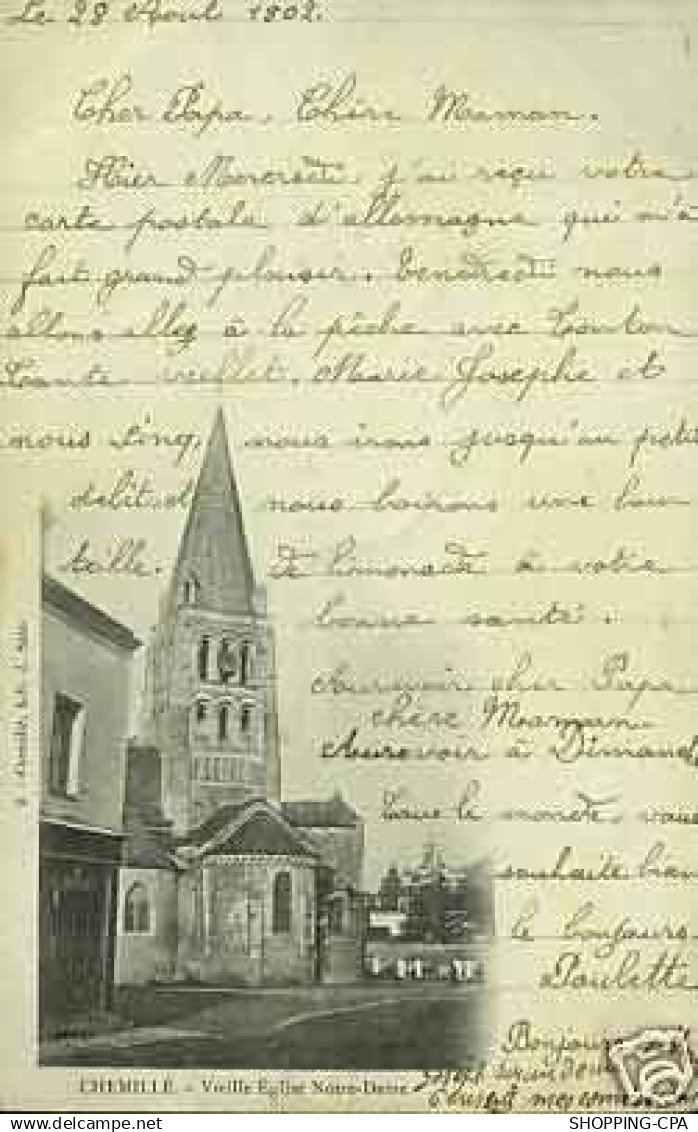 Le 28 Août 1902.
Cher Papa, Chère Maman.
Hier Mercredi j'ai reçu votre
carte postale d'allemagne qui m'a
fait grand plousir. Vendredi nous
allons allez à la pêche avec Tonton
Tante viellet. Marie Josephe et
nous cinq, nous irons jusqu'au petit
delit et nous boirons une bou
teille. de limonade à votre
bonne santé.
Aurevoir cher Papa
chère Maman
Aurevoir à Dimanch
Tout le monde vous
souhaite bien
le bonjours
Paulette
Bonjours
CHEMILLÉ. - Vieille Eglise Notre-Dame
SHOPPING-CPA